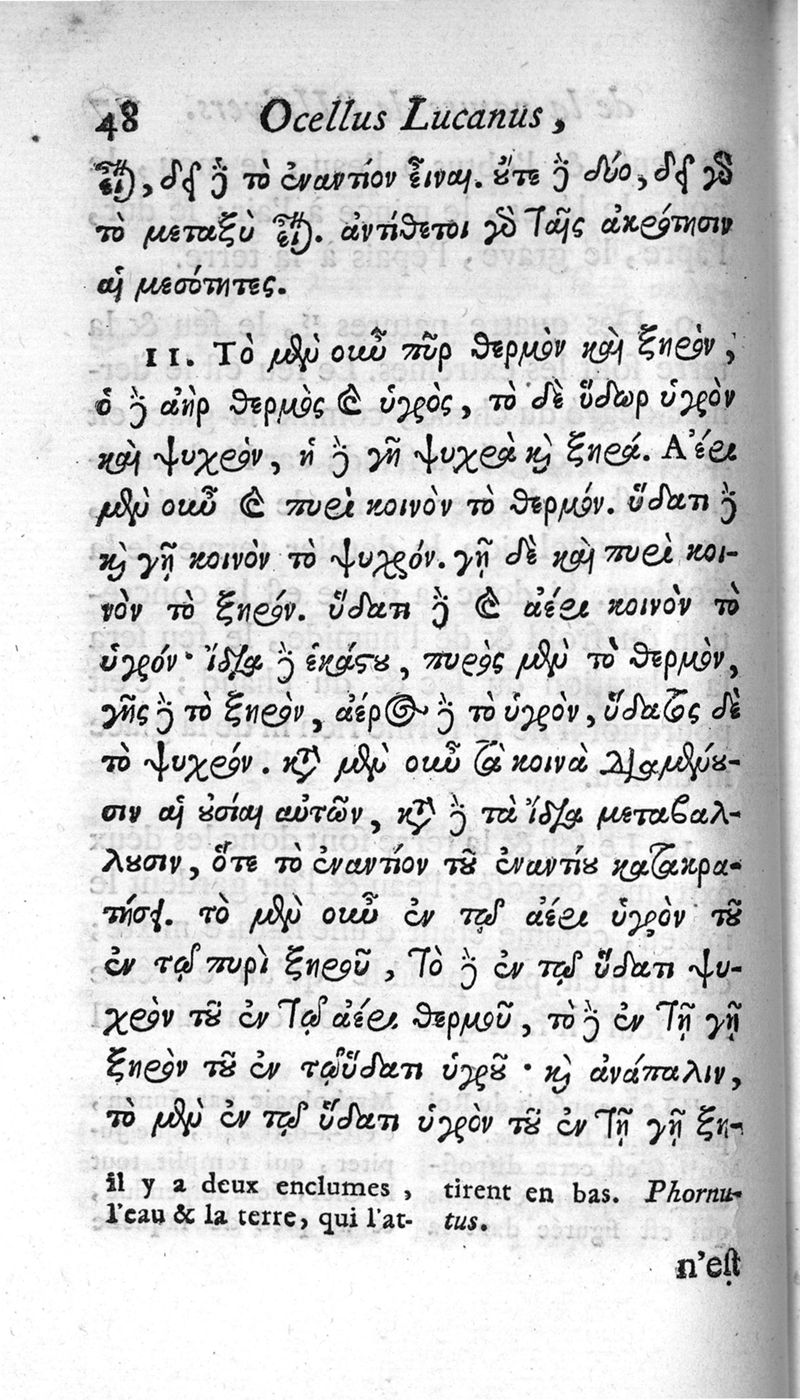 48 Ocellus Lucanus,
ἔτι, δεῖ δὲ τὸ ἐναντίον εἶναι. οὔτε δὲ δύο, δεῖ γὰρ
τὸ μεταξὺ ἔτι. ἀντίθετοι γὰρ ταῖς ἀκρότησιν
αἱ μεσότητες.
11. Τὸ μὲν οὖν πῦρ θερμὸν καὶ ξηρὸν,
ὁ δὲ ἀὴρ θερμὸς καὶ ὑγρὸς, τὸ δὲ ὕδωρ ὑγρὸν
καὶ ψυχρὸν, ἡ δὲ γῆ ψυχρὰ καὶ ξηρά. Ἀέρι
μὲν οὖν καὶ πυρὶ κοινὸν τὸ θερμόν. ὕδατι δὲ
καὶ γῇ κοινὸν τὸ ψυχρόν. γῇ δὲ καὶ πυρὶ κοι-
νὸν τὸ ξηρόν. ὕδατι δὲ καὶ ἀέρι κοινὸν τὸ
ὑγρόν· ἴδια δὲ ἑκάστου, πυρὸς μὲν τὸ θερμὸν,
γῆς δὲ τὸ ξηρὸν, ἀέρος δὲ τὸ ὑγρὸν, ὕδατος δὲ
τὸ ψυχρόν. κατὰ μὲν οὖν τὰ κοινὰ διαμένου-
σιν αἱ οὐσίαι αὐτῶν, κατὰ δὲ τὰ ἴδια μεταβάλ-
λουσιν, ὅτε τὸ ἐναντίον τοῦ ἐναντίου κατακρα-
τήσει. τὸ μὲν οὖν ἐν τῷ ἀέρι ὑγρὸν τοῦ
ἐν τῷ πυρὶ ξηροῦ, Τὸ δὲ ἐν τῷ ὕδατι ψυ-
χρὸν τοῦ ἐν τῷ ἀέρι θερμοῦ, τὸ δὲ ἐν τῇ γῇ
ξηρὸν τοῦ ἐν τῷ ὕδατι ὑγροῦ· καὶ ἀνάπαλιν,
τὸ μὲν ἐν τῷ ὕδατι ὑγρὸν τοῦ ἐν τῇ γῇ ξη-
il y a deux enclumes,
l'eau & la terre, qui l'at-
tirent en bas. Phornu-
tus.
n'est